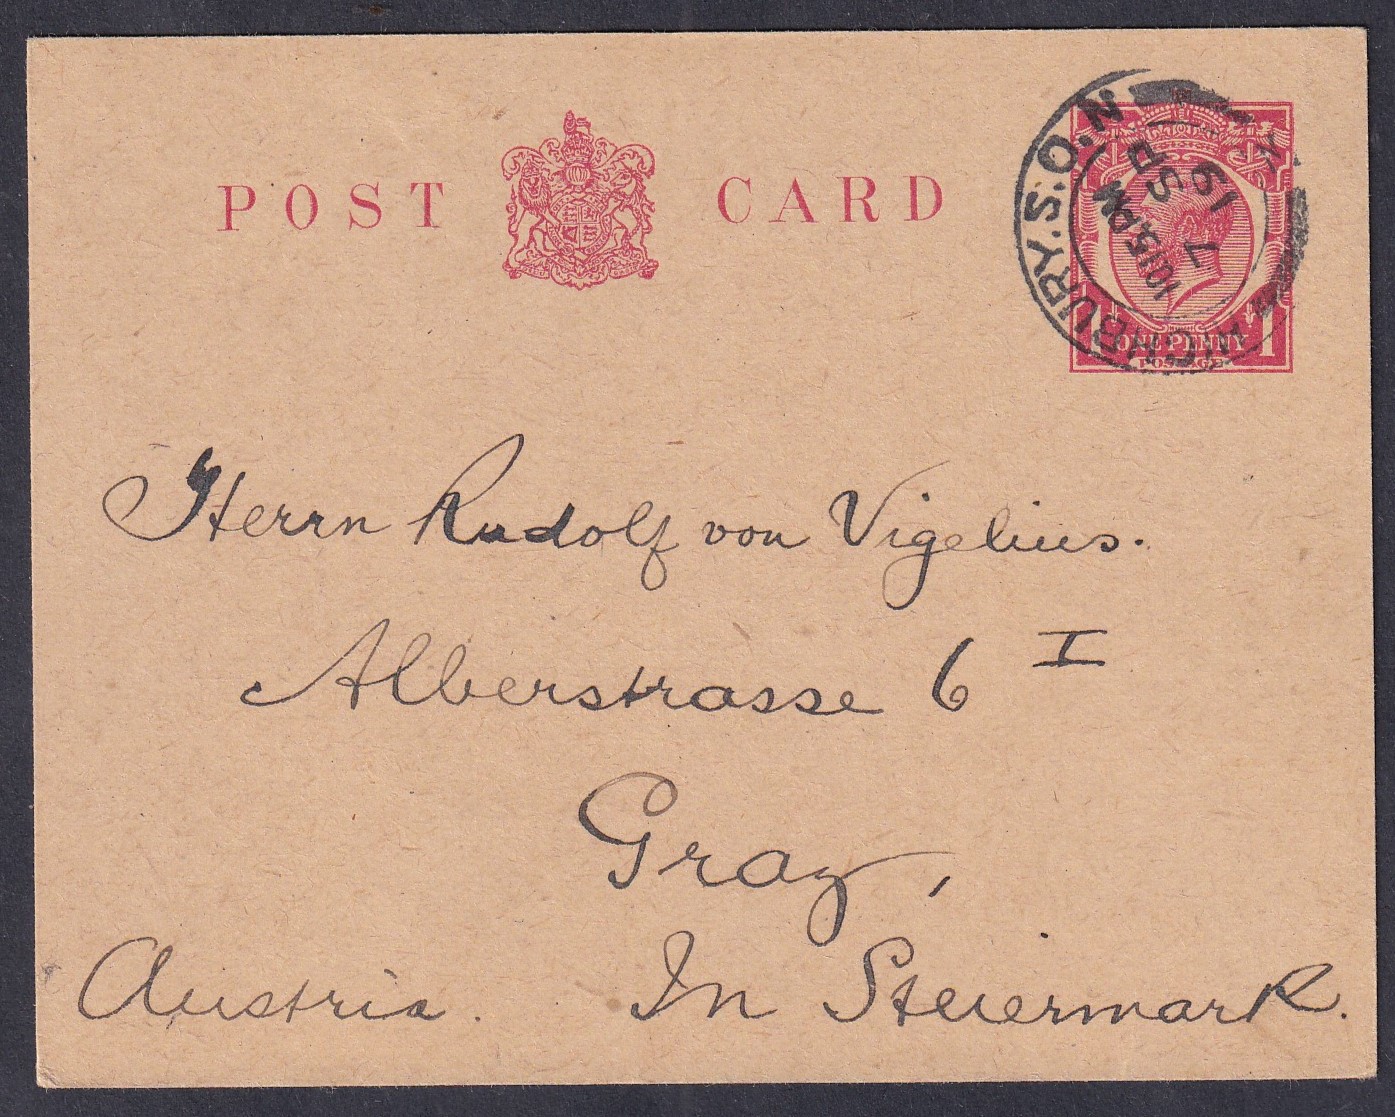 POST CARD
HIGHBURY.S.O.N
10.15PM
7 SP
19
1 ONE PENNY 1
POSTAGE
Herrn Rudolf von Vigelius.
Alberstrasse 6 I
Graz,
Austria. In Steiermark.